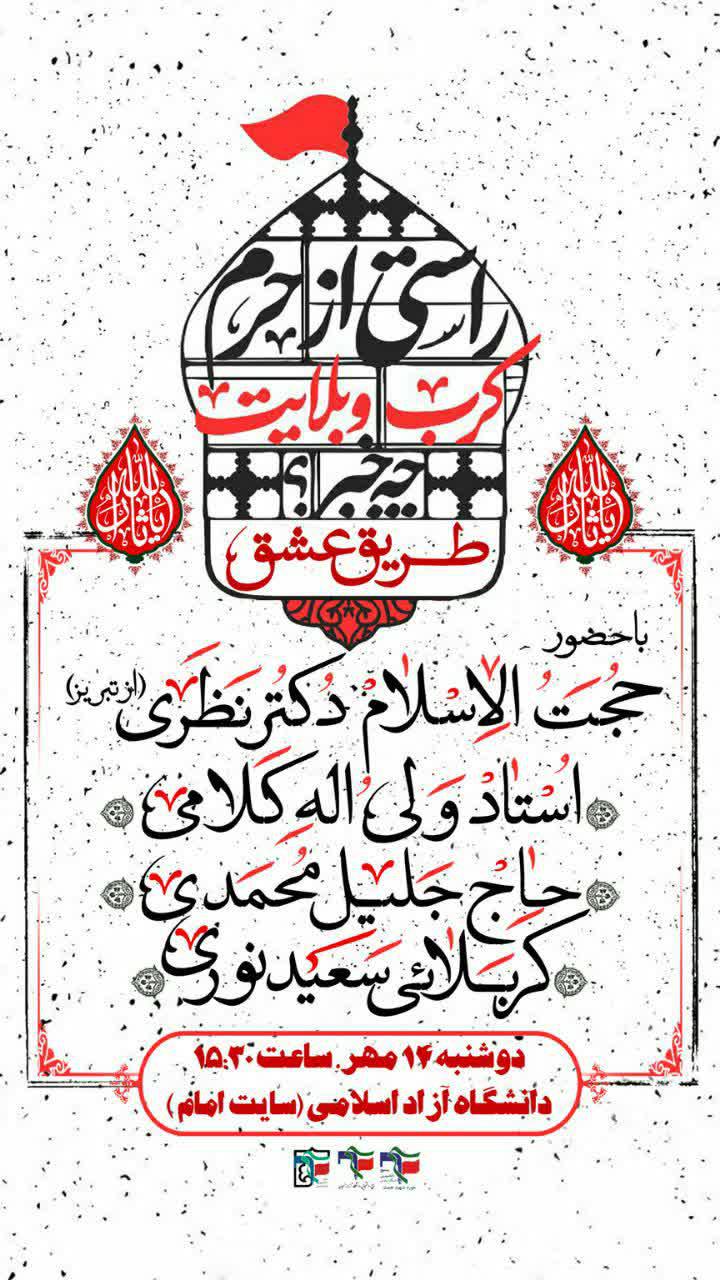 راستی از حرم
کرب وبلایت
چه خبر؟
طریق عشق
یا ثارالله
یا ثارالله
باحضور
حُجَتُ الاِسْلامْ دُکتُر نَظَری (از تبریز)
اُسْتادْ وَلیُ الهِ کَلامی
حاجْ جَلیل مُحَمَدی
کَربَلائی سَعیدنوری
دوشنبه ۱۴ مهر، ساعت ۱۵:۳۰
دانشگاه آزاد اسلامی (سایت امام)